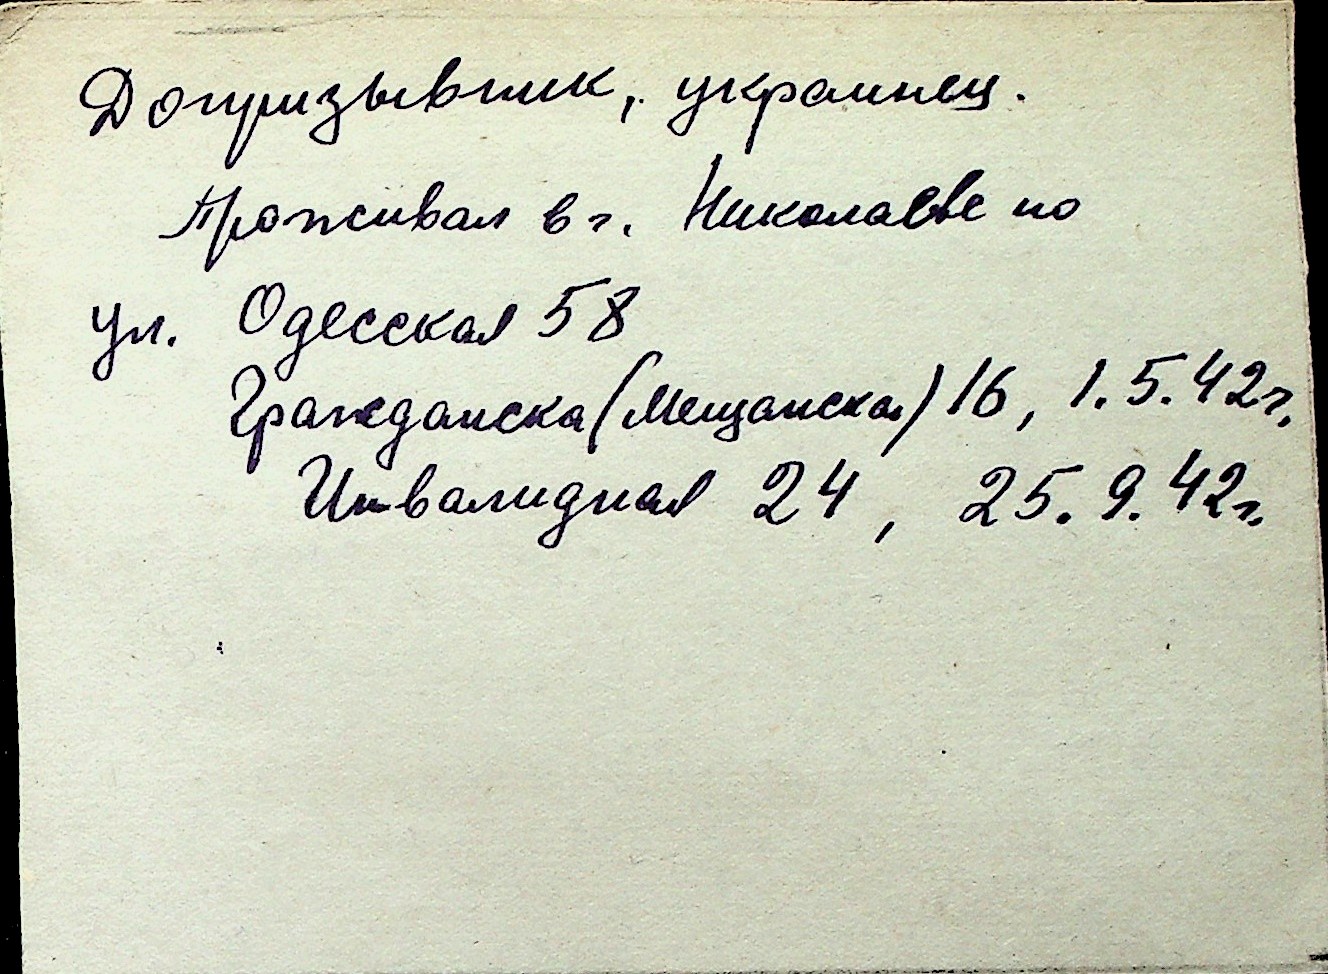 Допризывник, украинец.
Проживал в г. Николаеве по
ул. Одесская 58
Гражданска (Мещанская) 16, 1.5.42г.
Инвалидная 24, 25.9.42г.